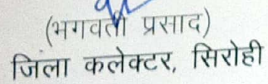 (भगवती प्रसाद)
जिला कलेक्टर, सिरोही